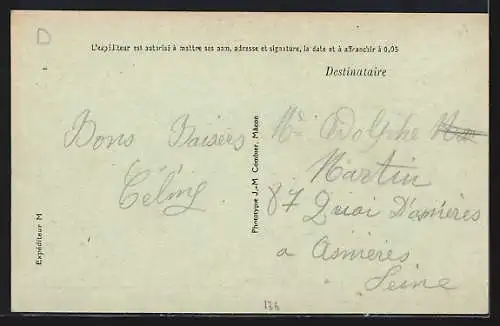 D
L'expéditeur est autorisé à mettre ses nom, adresse et signature, la date et à affranchir à 0,05
Destinataire
Bons Baisers
Expéditeur M
Phototypie J.-M. Combier, Mâcon
Mr Adolphe
Martin
87 Quai D'asnières
a Asnières
Seine
136